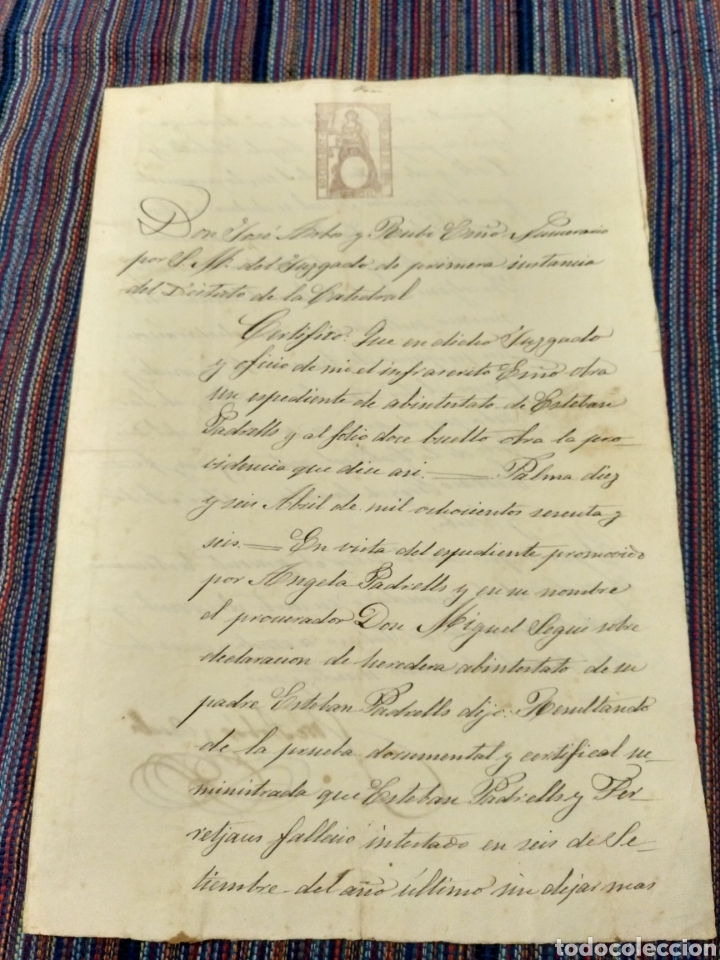 Don José Arbo y Rubi Esno. Numerario
por S. M. del Juzgado de primera instancia
del Distrito de la Catedral
Certifico: Que en dicho Juzgado
y oficio de mi el infrascrito Esno obra
un espediente de abintestato de Esteban
Padrells y al folio doce buelto obra la pro
videncia que dice asi. — Palma diez
y seis Abril de mil ochocientos sesenta y
seis. — En vista del espediente promovido
por Angela Padrells y en su nombre
el procurador Don Miguel Segui sobre
declaracion de heredera abintestato de su
padre Esteban Padrells dijo: Resultando
de la prueba documental y certifical su
ministrada que Esteban Padrells y Fer
retjans fallecio intestado en seis de Se-
tiembre del año último sin dejar mas
todocoleccion